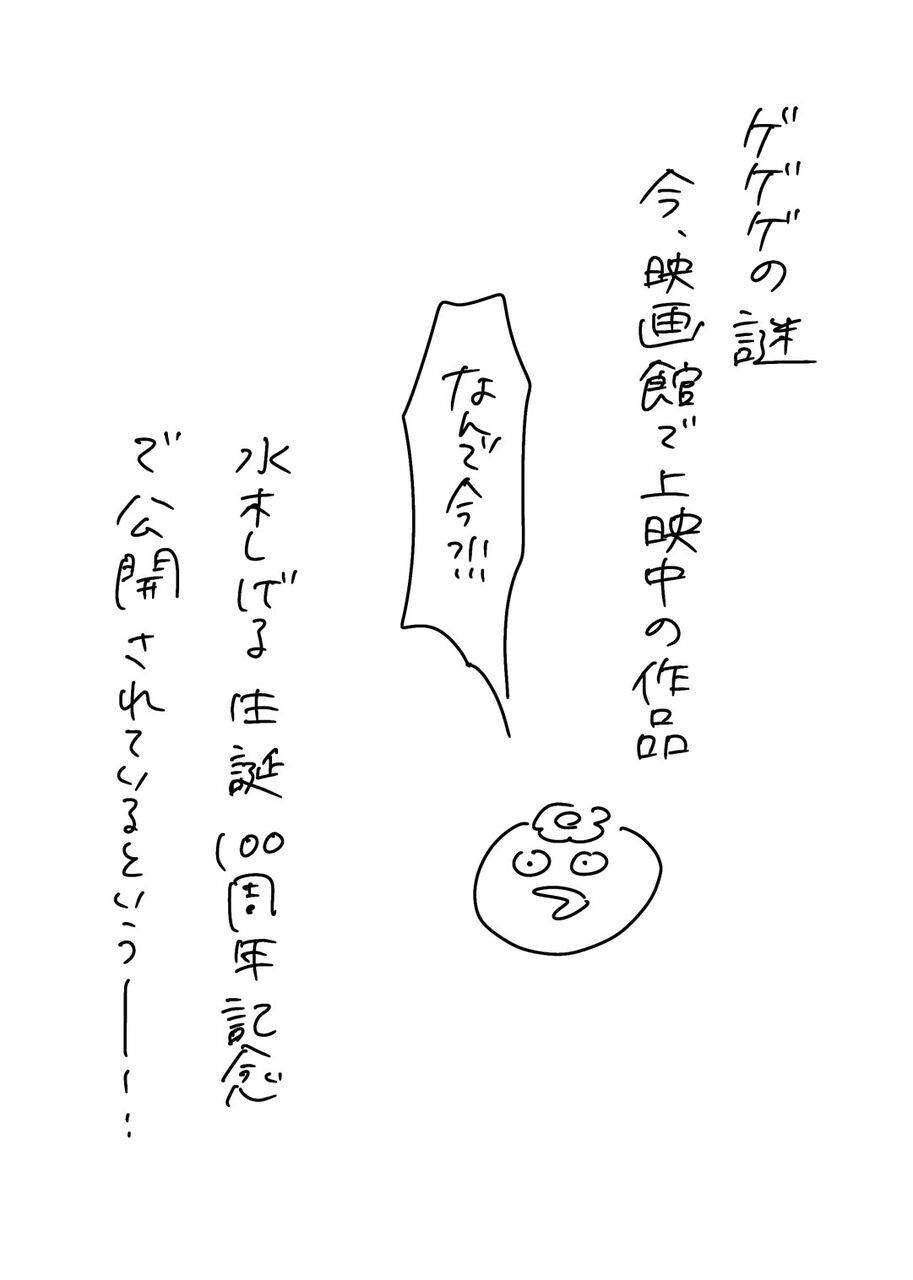 ゲゲゲの謎
今、映画館で上映中の作品
なんで今?!!!
水木しげる生誕100周年記念
で公開されているというーー・・